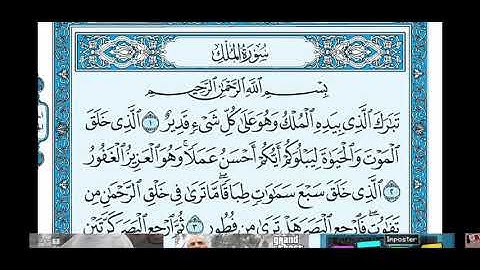 سُورَةُ الْمُلْكِ
بِسْمِ اللَّهِ الرَّحْمَٰنِ الرَّحِيمِ
تَبَٰرَكَ ٱلَّذِى بِيَدِهِ ٱلْمُلْكُ وَهُوَ عَلَىٰ كُلِّ شَىْءٍ قَدِيرٌ ١ ٱلَّذِى خَلَقَ
ٱلْمَوْتَ وَٱلْحَيَوٰةَ لِيَبْلُوَكُمْ أَيُّكُمْ أَحْسَنُ عَمَلًا وَهُوَ ٱلْعَزِيزُ ٱلْغَفُورُ
٢ ٱلَّذِى خَلَقَ سَبْعَ سَمَٰوَٰتٍ طِبَاقًا مَّا تَرَىٰ فِى خَلْقِ ٱلرَّحْمَٰنِ مِن
تَفَٰوُتٍ فَٱرْجِعِ ٱلْبَصَرَ هَلْ تَرَىٰ مِن فُطُورٍ ٣ ثُمَّ ٱرْجِعِ ٱلْبَصَرَ كَرَّتَيْنِ
grand
Imposter